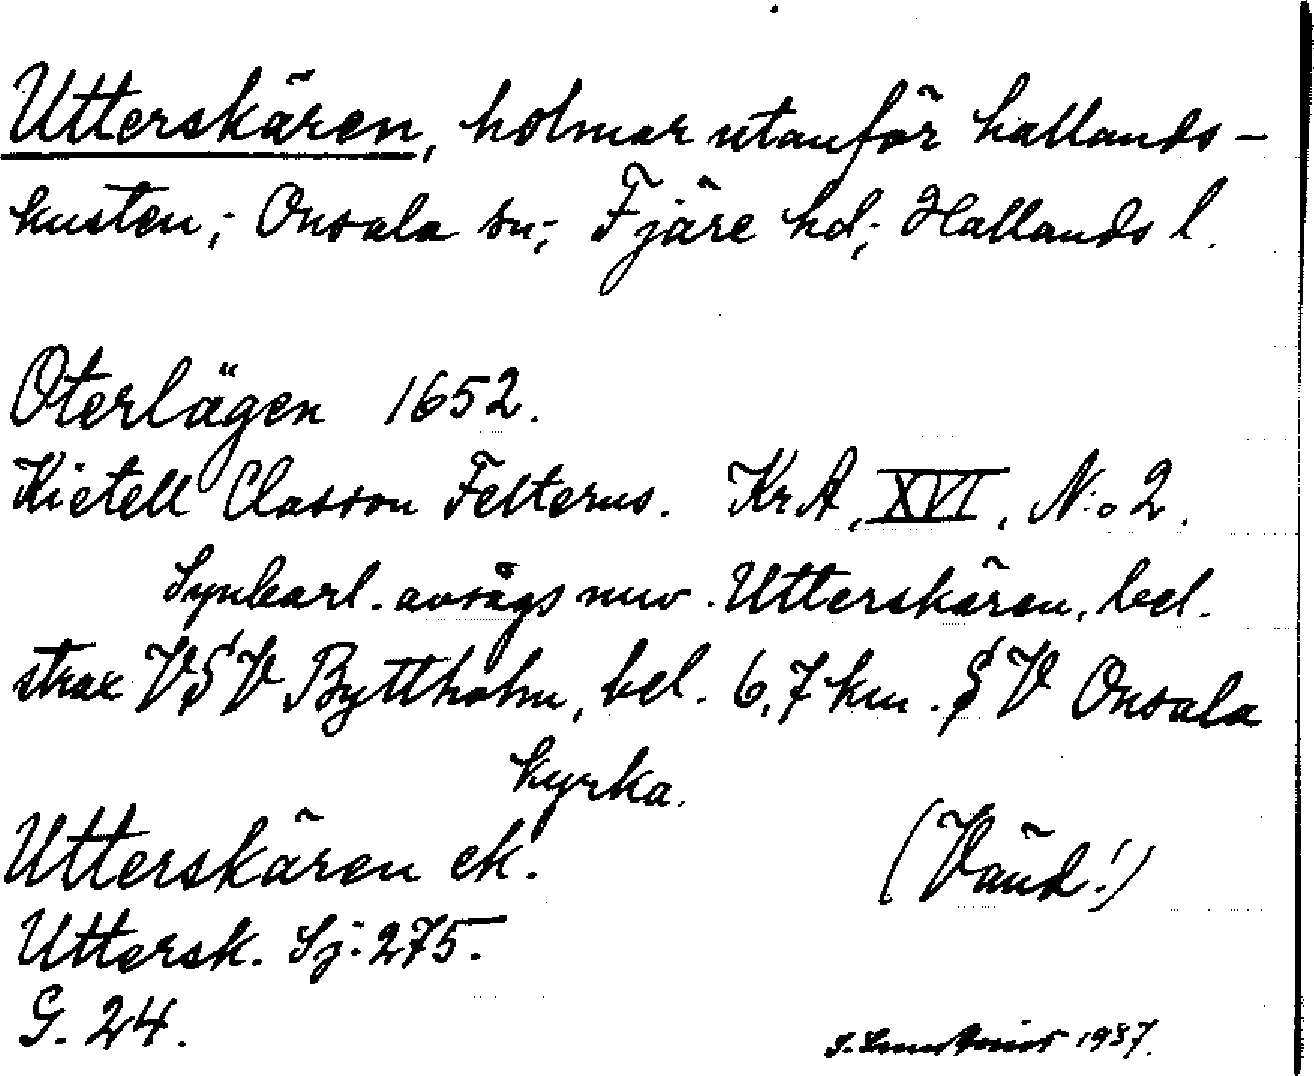 Utterskären, holmar utanför hallands-
kusten; Onsala sn; Fjäre hd; Hallands l.
Oterlägen 1652.
Kietell Classon Felterus. KrA, XVI, N:o 2.
Synbarl. avsågs nuv. Utterskären, bel.
strax VSV Byttholm, bel. 6,7 km. SV Onsala
kyrka.
Utterskären ek.
(Vänd!)
Uttersk. Sj: 275.
G. 24.
1937.